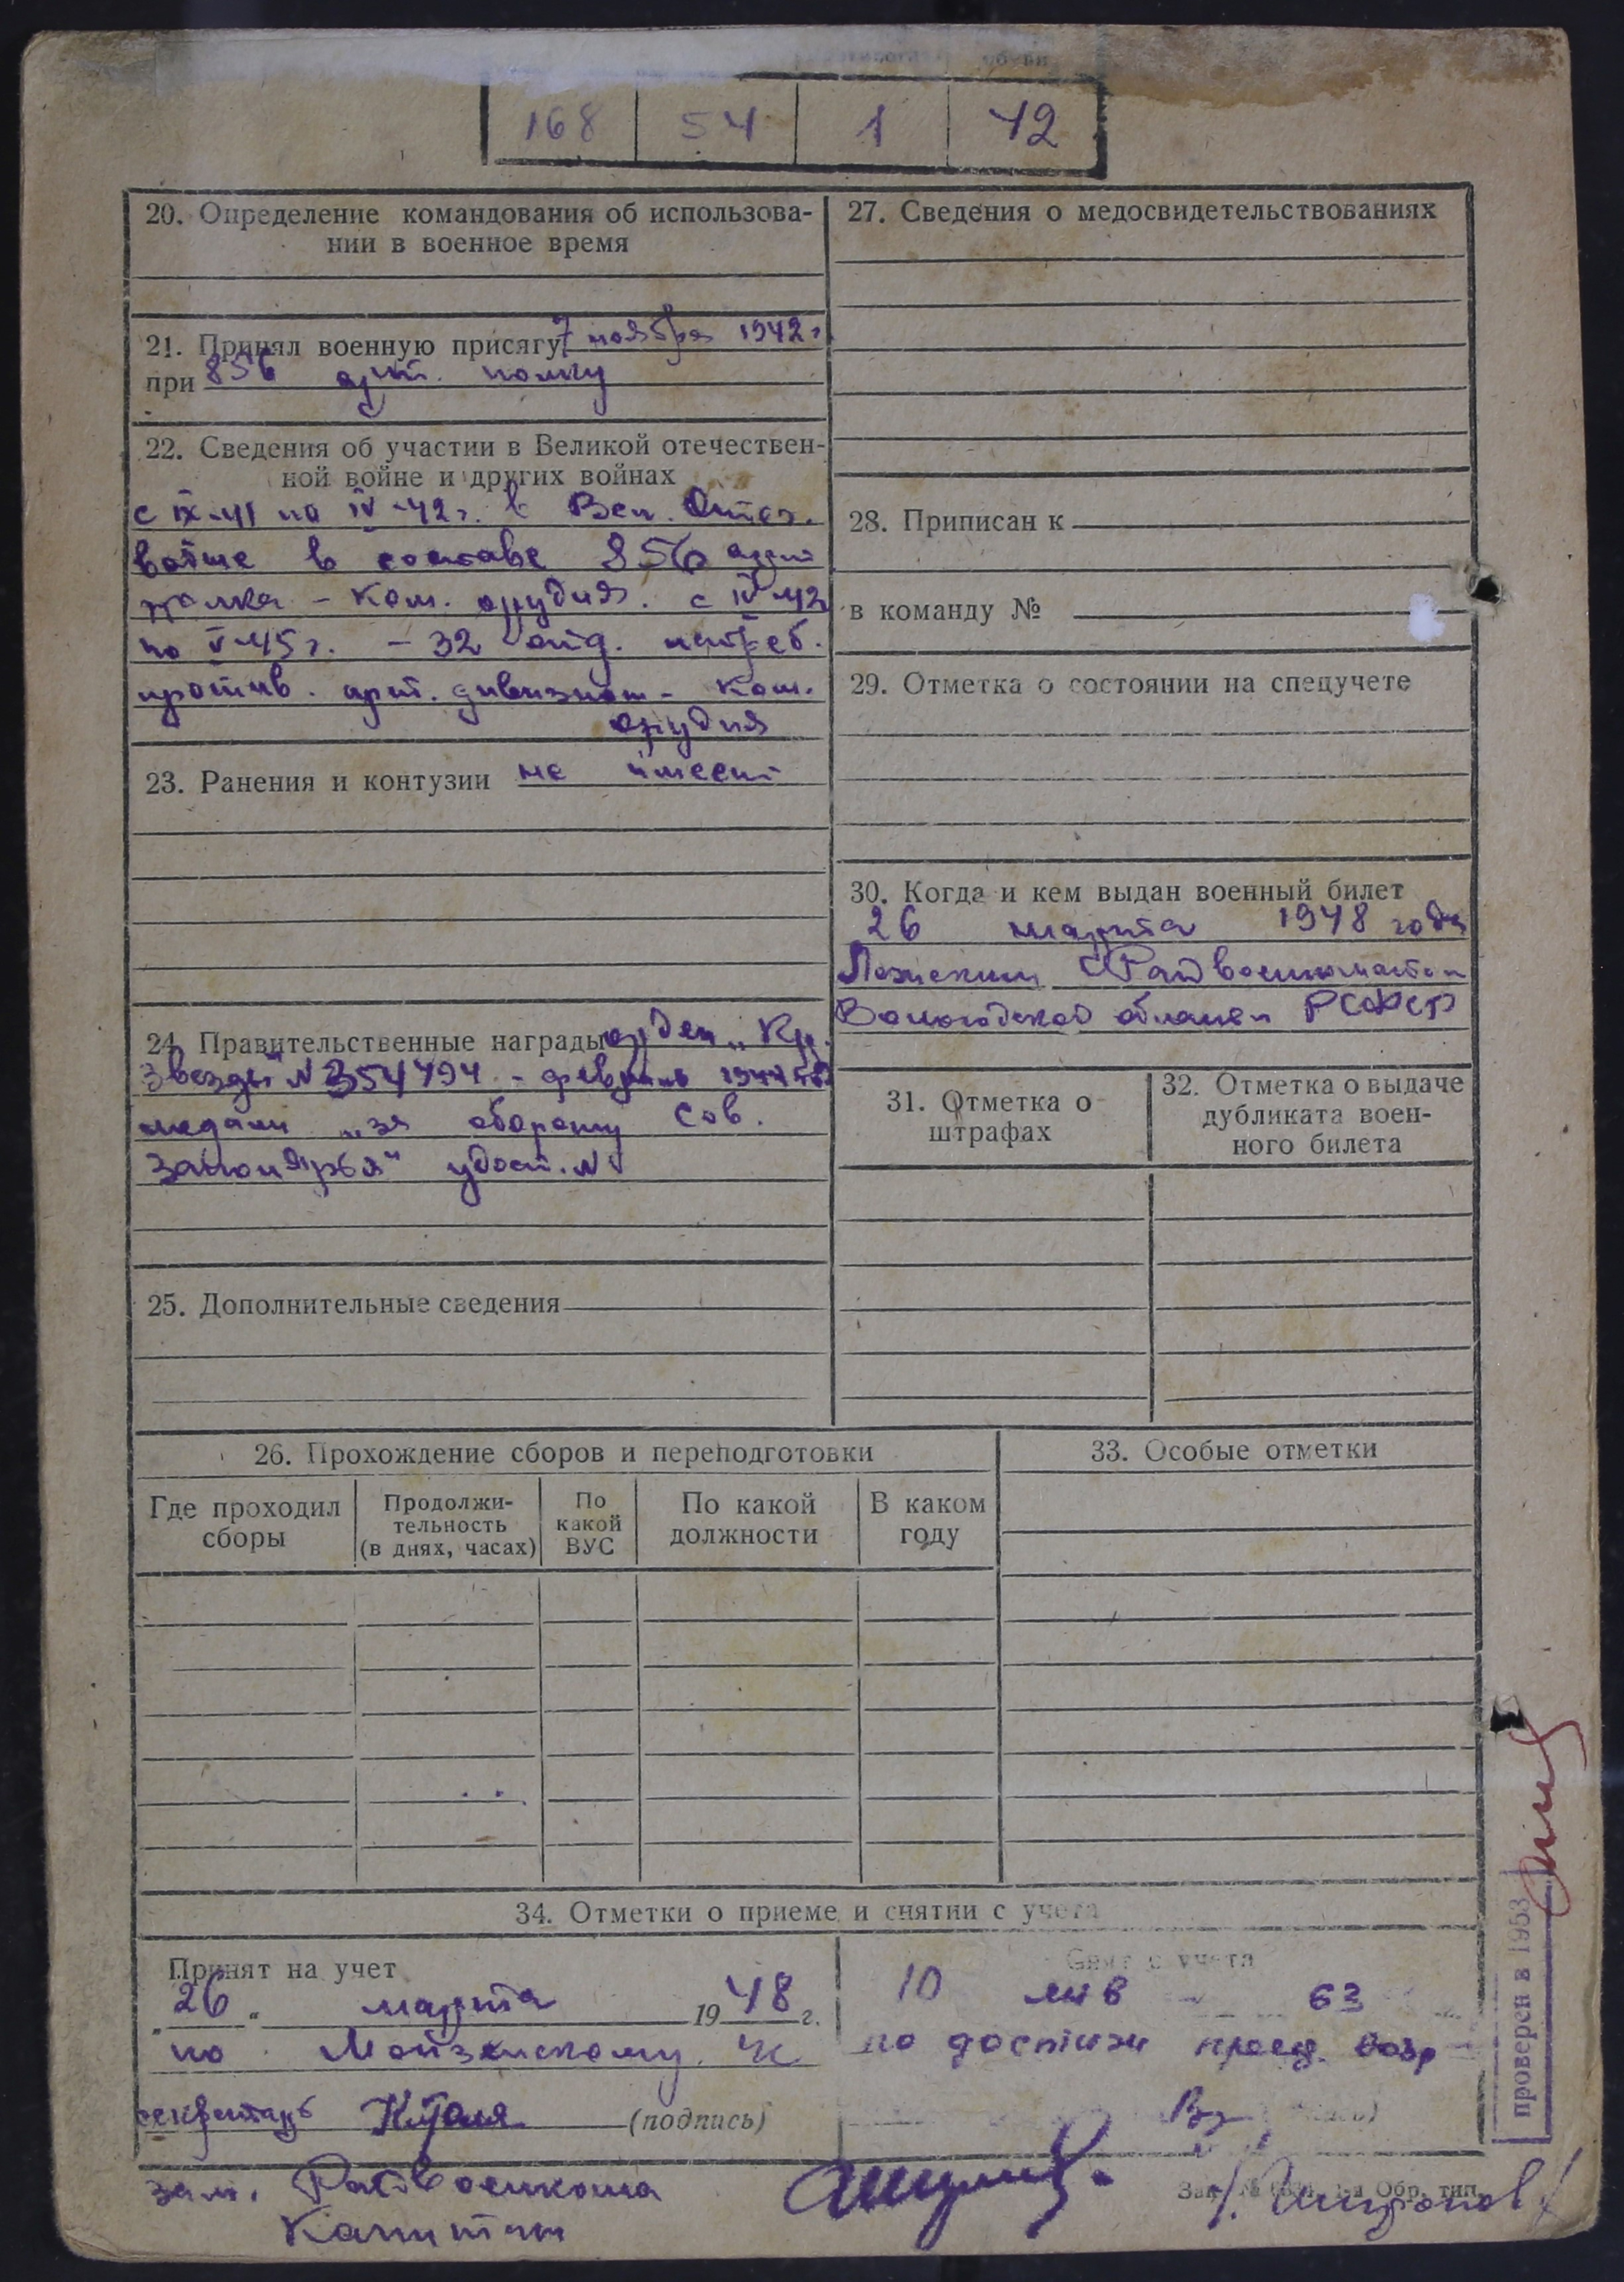 168 54 1 42
20. Определение командования об использова-
нии в военное время
21. Принял военную присягу 7 ноября 1942 г
при 856 арт. полку
22. Сведения об участии в Великой отечествен-
ной войне и других войнах
с IX-41 по IV-42 г. в Вел. Отеч.
войне в составе 856 арт
полка - ком. орудия. с IV 42
по V-45 г. - 32 отд. истреб.
против. арт. дивизион - ком.
орудия
23. Ранения и контузии не имеет
24. Правительственные награды орден „Кр.
Звезды" № 354794 - февраль 1944
медали „за оборону Сов.
Заполярья" удост. №
25. Дополнительные сведения
26. Прохождение сборов и переподготовки
Где проходил
сборы
Продолжи-
тельность
(в днях, часах)
По
какой
ВУС
По какой
должности
В каком
году
27. Сведения о медосвидетельствованиях
28. Приписан к
в команду №
29. Отметка о состоянии на спецучете
30. Когда и кем выдан военный билет
26 марта 1948 года
Райвоенкоматом
Вологодской области РСФСР
31. Отметка о
штрафах
32. Отметка о выдаче
дубликата воен-
ного билета
33. Особые отметки
34. Отметки о приеме и снятии с учета
Принят на учет
„26" марта 1948 г.
по
секретарь (подпись)
Снят с учета
10 янв 63
по достиж пред. возр
зам. Райвоенкома
Капитан
проверен в 1953